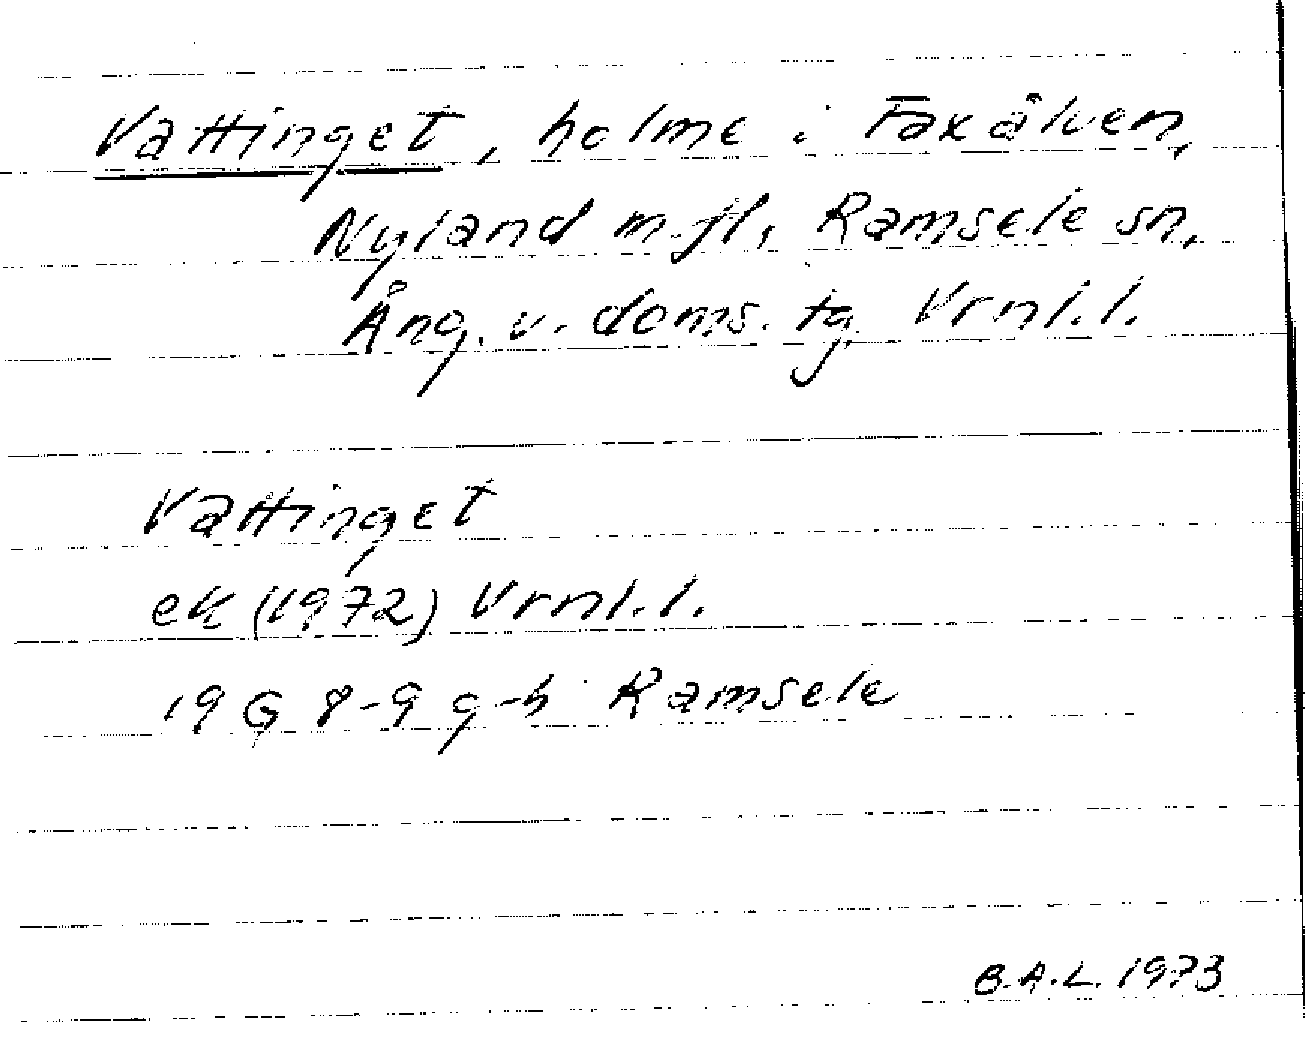 Vattinget, holme i Faxälven,
Nyland m.fl., Ramsele sn,
Ång. v. doms. tg. Vrnl.l.
Vattinget
ek (1972) Vrnl.l.
19 G 8-9 g-h Ramsele
B.A.L. 1973